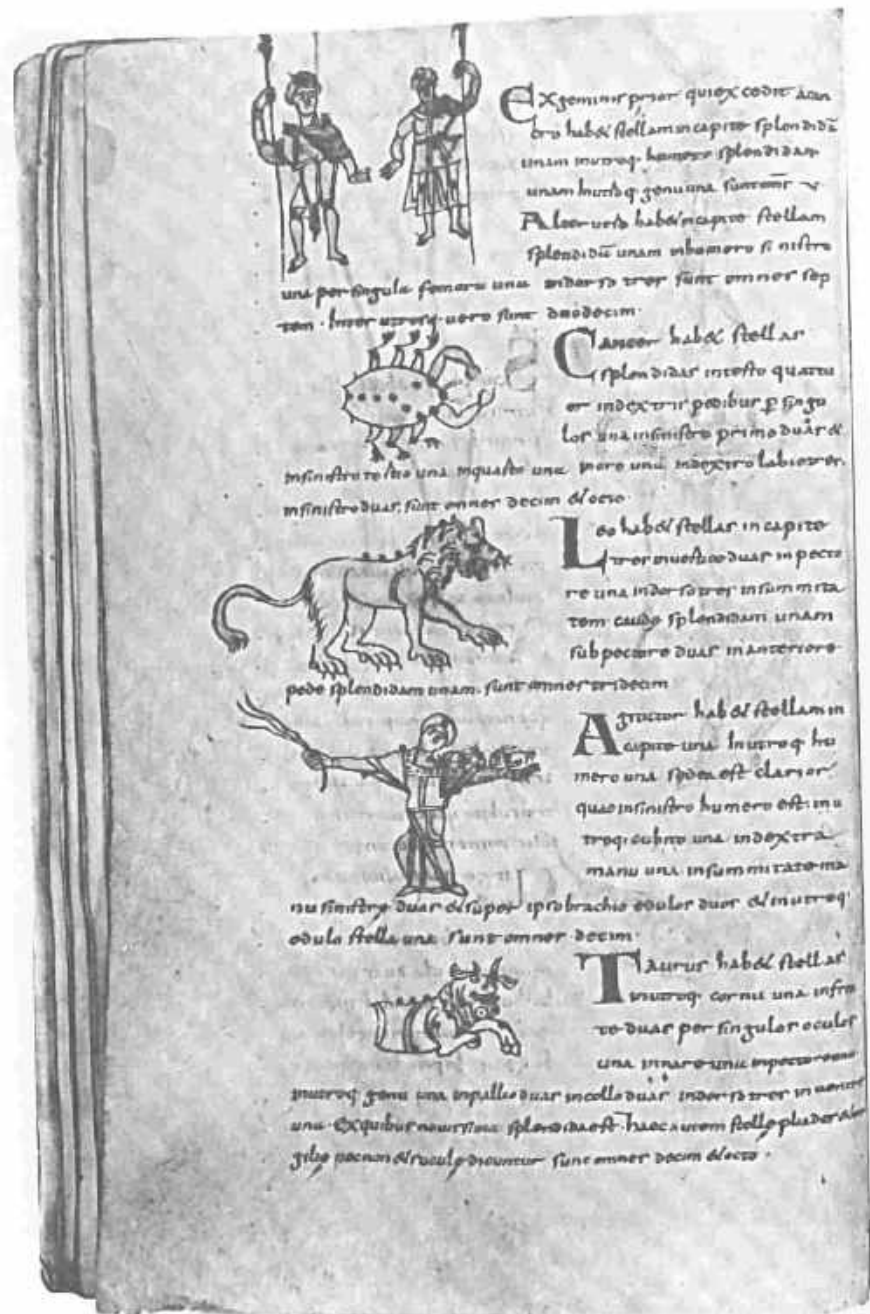 Ex geminis prior qui excedit a can
cro habet stellam in capite splendidā
unam in utroq· humero splendidam
unam in utroq genu una sunt omīs v
Alter vero habet in capite stellam
splendidā unam in humero sinistro
una per singula femora una in dorso tres sunt omnes sep
tem · Inter utrosq· uero sunt duodecim·
Cancer habet stellas
splendidas in testo quattu
or in dextris pedibus ꝑ singu
los una in sinistro primo duas &
in sinistro tertio una in quarto una in ore una in dextro labio tres.
in sinistro duas, sunt omnes decim & octo
Leo habet stellas in capite
tres in uertice duas in pecto
re una in dorso tres in summita
tem caudę splendidam unam
sub pectore duas in anteriore
pede splendidam unam. sunt omnes tridecim
Agitator habet stellam in
capite una In utroq hu
mero una sed ea est clarior
quae in sinistro humero est: in u
troq; cubito una in dextra
manu una in summitate ma
nu sinistrę duas & super ipso brachio edulos duos & in utroq·
edulo stella una sunt omnes decim·
Taurus habet stellas
in utroq· cornu una in fron
te duas per singulos oculos
una in nare una in pectore una
in utroq genu una in palleo duas in collo duas in dorso tres in uentre
una · Ex quibus nouissima splendida est· haec autem stellę pliades
sunt omnes decim & octo ·